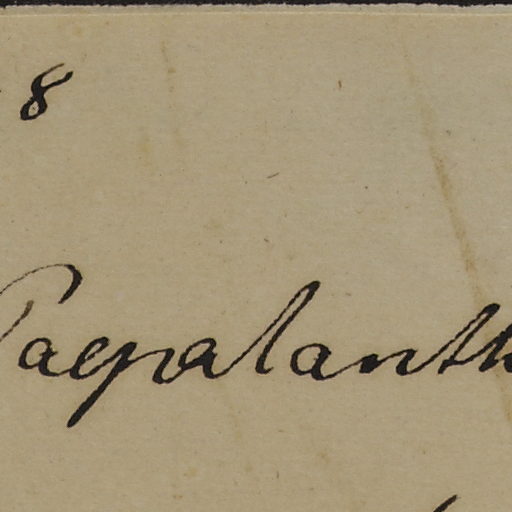 8
Paepalanth